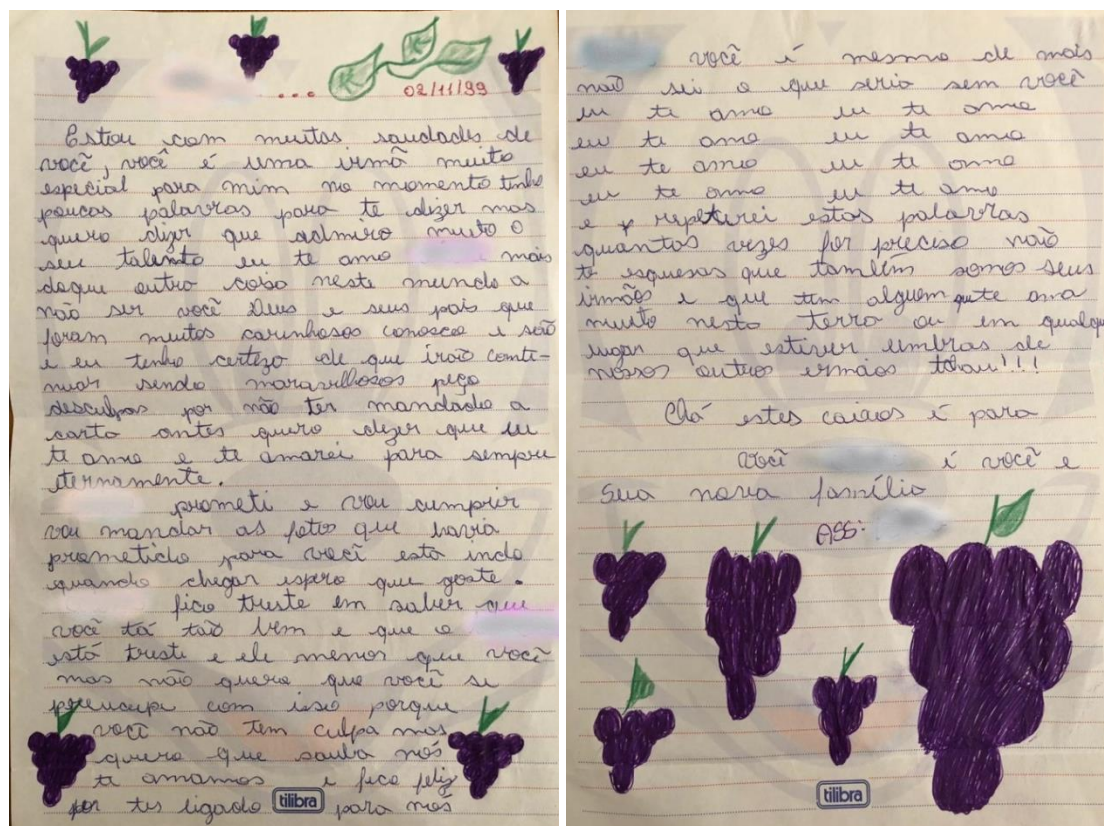 ...
02/11/99
Estou com muitas saudades de
você, você é uma irmã muito
especial para mim no momento tenho
poucas palavras para te dizer mas
quero dizer que admiro muito o
seu talento eu te amo mais
doque outro coisa neste mundo a
não ser você Deus e seus pais que
foram muitos carinhosos conosco e são
e eu tenho certeza de que irão conti-
nuar sendo maravilhosos peço
desculpas por não ter mandado a
carta antes quero dizer que eu
te amo e te amarei para sempre
eternamente.
prometi e vou cumprir
vou mandar as foto que havia
prometido para você está indo
quando chegar espero que goste.
fico triste em saber que
você tá tão bem e que o
está triste e ele menor que você
mas não quero que você se
preucupe com isso porque
você não tem culpa mas
quero que saiba nós
te amamos e fico feliz
por tes ligado para nós
tilibra
você é mesmo de mais
não sei o que seria sem você
eu te amo eu te amo
eu te amo eu te amo
eu te amo eu te amo
eu te amo eu te amo
e repeterei estas palavras
quantas vezes for preciso não
te esquesas que também somos seus
irmãos e que tem alguem que te ama
muito nesta terra ou em qualque
lugar que estiver lembras de
nossos outros irmãos tchau!!!
Chá estes caixos é para
você e você e
sua nova família
ASS:
tilibra